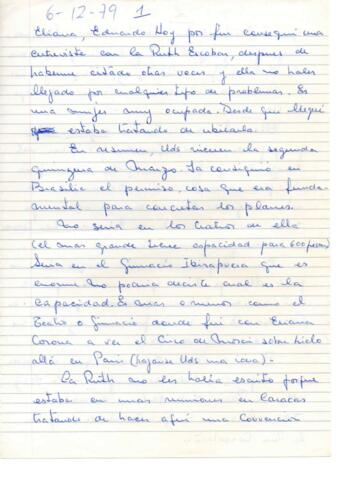 6-12-79 1
Eliana, Eduardo Hoy por fin conseguí una
entrevista con la Ruth Escobar, despues de
haberme citado otras veces, y ella no haber
llegado por cualquier tipo de problemas. Es
una mujer muy ocupada. Desde que llegué
estaba tratando de ubicarla.
En resumen, Uds vienen la segunda
quincena de Marzo. Ya consiguió en
Brasilia el permiso, cosa que era funda-
mental para concretar los planes.
No sería en los teatros de ella
(el mas grande tiene capacidad para 600 personas)
Sería en el Gimnacio Ibirapuera que es
enorme no podría decirte cual es la
capacidad. Es mas o menos como el
Teatro o Gimnacio donde fui con Eliana
Corona a ver el Circo de Moscú sobre hielo
allá en Paris (haganse Uds una idea).
La Ruth no les había escrito porque
estaba en unas reuniones en Caracas
tratando de hacer aquí una Convención